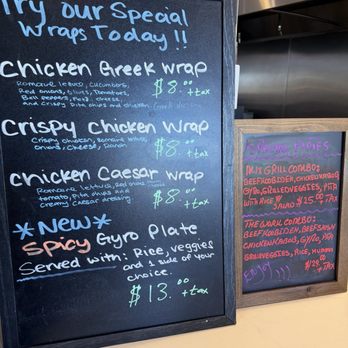 Try our Special
Wraps Today!!
Chicken Greek Wrap
Romaine lettuce, cucumbers,
Red onions, olives, Tomatoes,
Bell peppers, Feta cheese,
and Crispy Pita chips and chicken
$8.00 +tax
Crispy Chicken Wrap
Crispy chicken, Romaine lettuce,
onions, cheese, Ranch
$8.00 +tax
Chicken Caesar Wrap
Romaine lettuce, Red onions
tomato, Pita chips and
creamy Caesar dressing
$8.00 +tax
*NEW*
Spicy Gyro Plate
Served with: Rice, veggies
and 1 side of your
choice.
$13.00 +tax
MIX GRILL COMBO:
BEEF KOOBIDEH, CHICKEN KABOB,
GYRO, GRILLED VEGGIES, PITA
WITH RICE SALAD $25.00 TAX
THE WORK COMBO:
BEEF KOOBIDEH, BEEF SHAWN
CHICKEN KABOB, GYRO, PITA
GRILL VEGGIES, RICE, HUMMUS
+ TAX